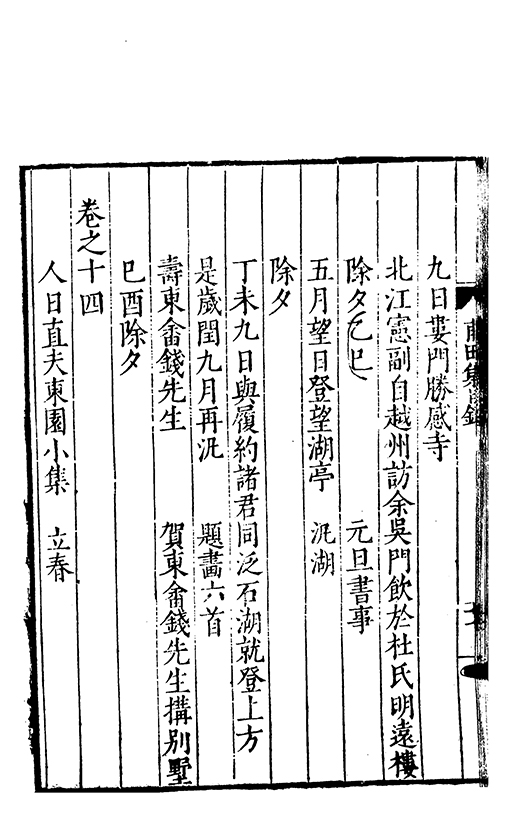 九日婁門勝感寺
北江憲副自越州訪余吳門飲於杜氏明遠樓
除夕乙巳　元旦書事
五月望日登望湖亭　汎湖
除夕
丁未九日與履約諸君同泛石湖就登上方
是歲閏九月再汎　題畫六首
壽東畬錢先生　賀東畬錢先生搆別墅
巳酉除夕
卷之十四
人日直夫東園小集　立春